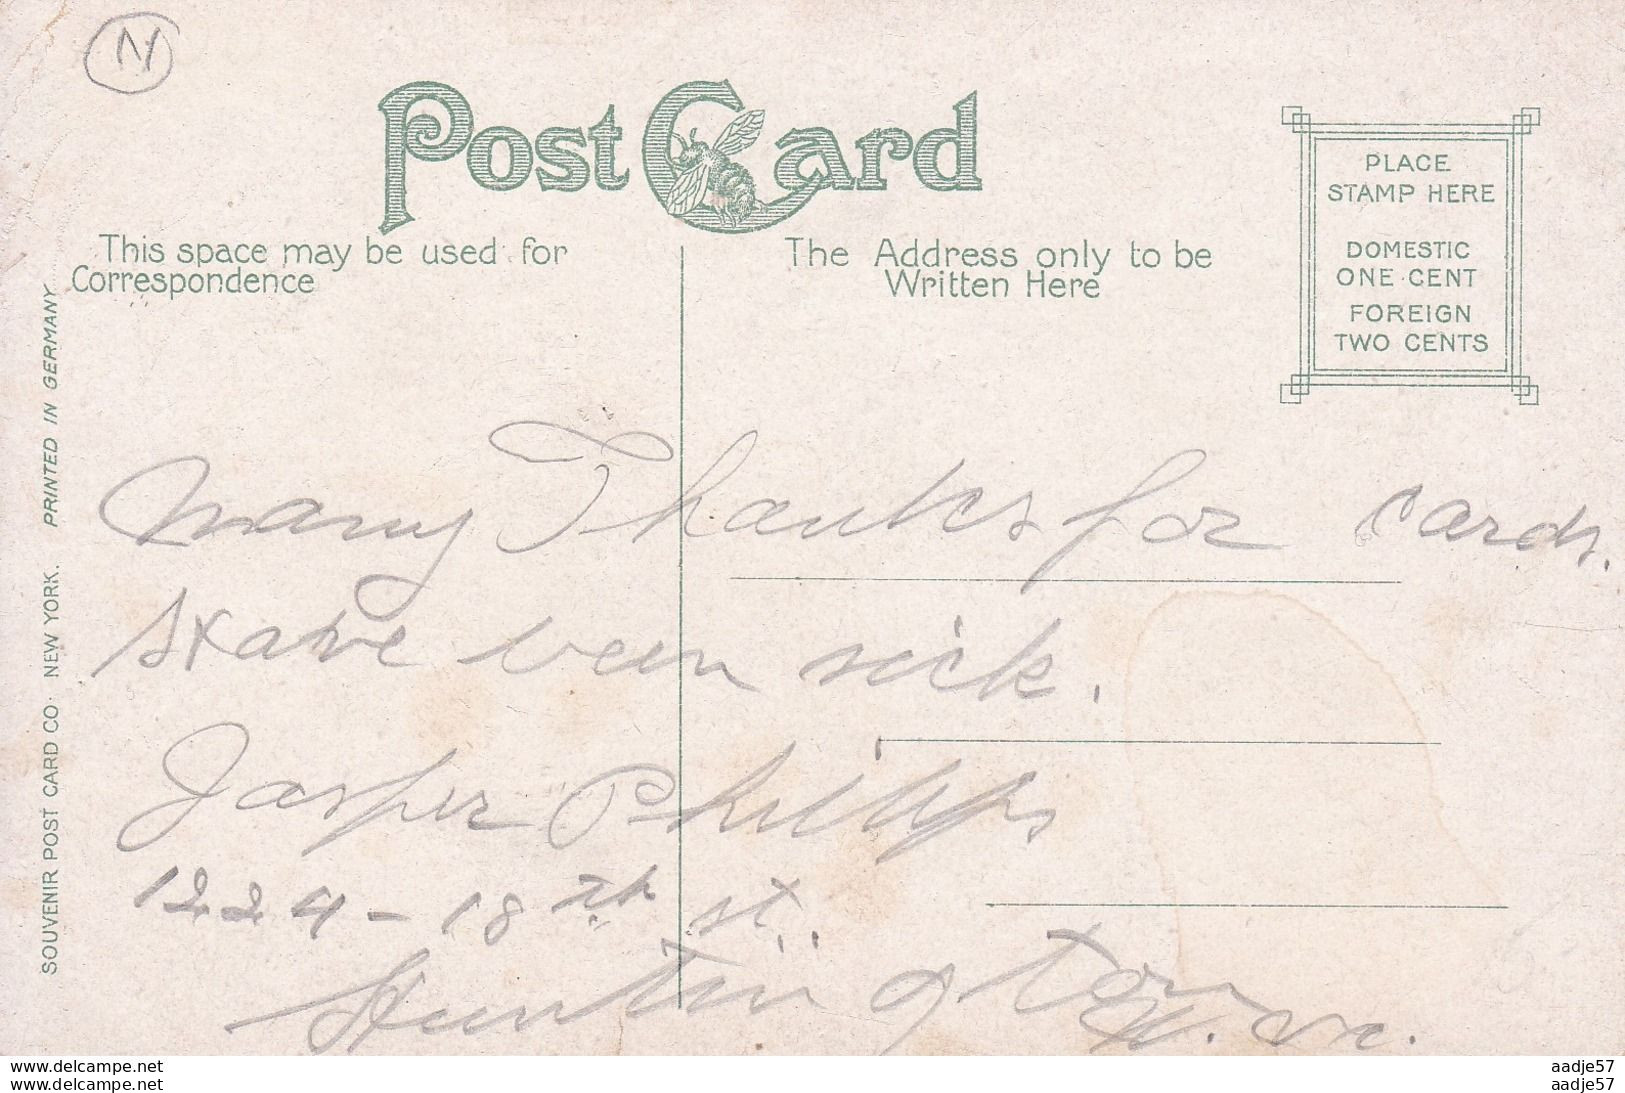 N
Post Card
This space may be used for
Correspondence
The Address only to be
Written Here
PLACE
STAMP HERE
DOMESTIC
ONE CENT
FOREIGN
TWO CENTS
SOUVENIR POST CARD CO. NEW YORK. PRINTED IN GERMANY
Many Thanks for cards.
Have been sick.
Jasper Phillips
1224-18th st.
Huntington
W. Va.
aadje57
www.delcampe.net
aadje57
www.delcampe.net